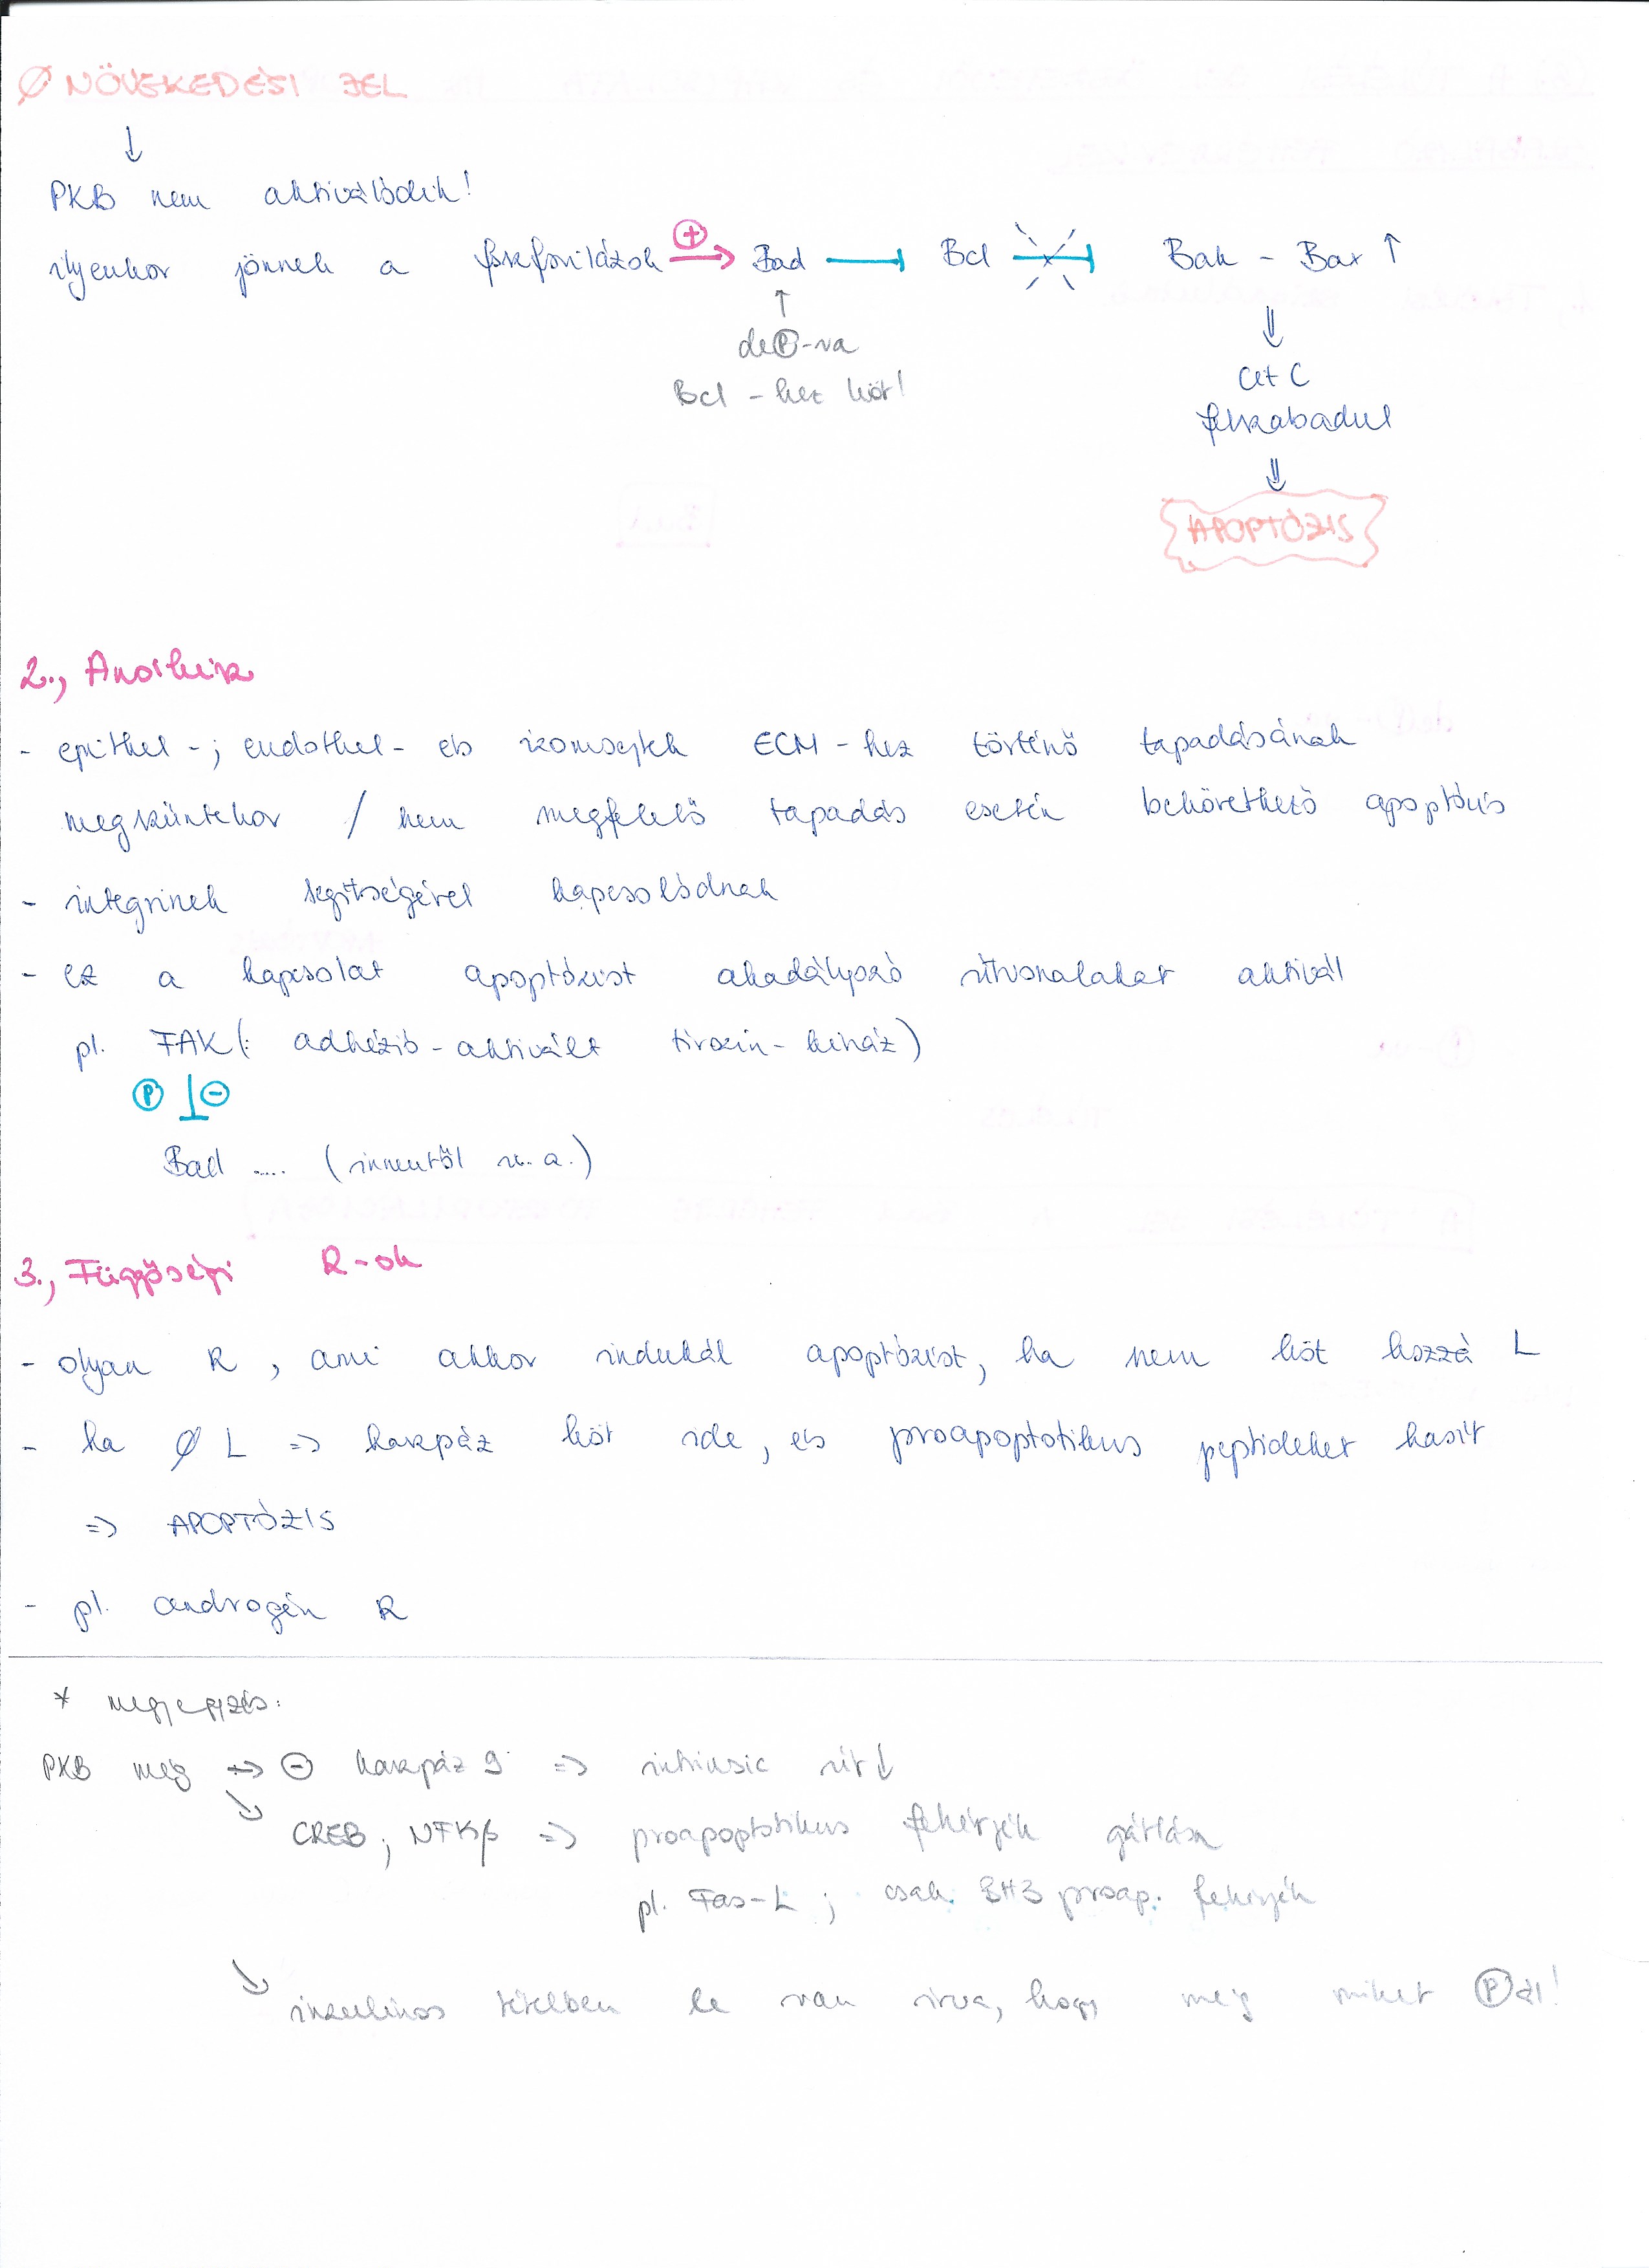 ∅ NÖVEKEDÉSI JEL
↓
PKB nem aktiválódik!
ilyenkor jönnek a foszforilázok ⊕→ Bad ⊣ Bcl ⊣ Bak - Bax ↑
↑ ⇓
deⓅ-va Cit C
Bcl-hez köt! felszabadul
⇓
APOPTÓZIS
2., Anoikisz
- epithel-; endothel- és izomsejtek ECM-hez történő tapadásának
megszűntekor / nem megfelelő tapadás esetén bekövetkező apoptózis
- integrinek segítségével kapcsolódnak
- ez a kapcsolat apoptózist akadályozó útvonalakat aktivál
pl. FAK (: adhézió-aktivált tirozin-kináz)
Ⓟ ⊥ ⊖
Bad .... (innentől u.a.)
3., Függőségi R-ok
- olyan R, ami akkor indukál apoptózist, ha nem köt hozzá L
- ha ∅ L => kaszpáz köt ide, és proapoptotikus peptideket hasít
=> APOPTÓZIS
- pl. androgén R
* megjegyzés:
PKB még → ⊖ kaszpáz 9 => intrinsic út↓
↘ CREB; NFKβ => proapoptotikus fehérjék gátlása
pl. Fas-L; csak BH3 proap. fehérjék
↘ inzulinos tételben le van írva, hogy még miket Ⓟál!